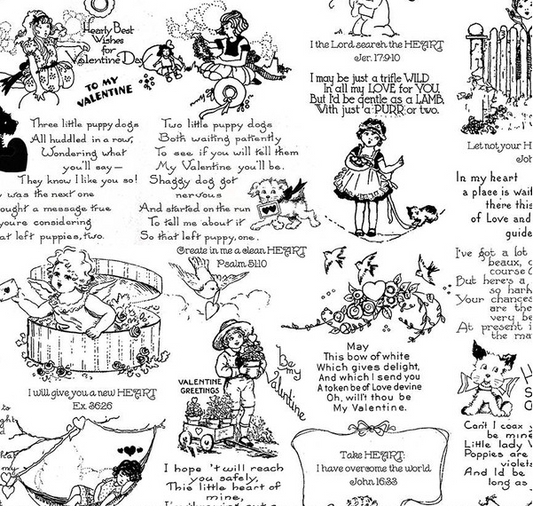 Hearty Best
Wishes
for
Valentine Day
TO MY
VALENTINE
Three little puppy dogs
All huddled in a row,
Wondering what
you'll say—
They know I like you so!
was the next one
ought a message true
you're considering
at left puppies, two.
Two little puppy dogs
Both waiting patiently
To see if you will tell them
My Valentine you'll be.
Shaggy dog got
nervous
And started on the run
To tell me about it
So that left puppy, one.
Create in me a clean HEART
Psalm 51:10
I the Lord search the HEART
Jer. 17:9-10
I may be just a trifle WILD
In all my LOVE for YOU,
But I'd be gentle as a LAMB,
With just a PURR or two.
Let not your H
Joh
In my heart
a place is wait
there this
of Love and
guide
I've got a lot
beaux, o
course
But here's a
so hard
Your chances
are the
very be
At present i
the ma
I will give you a new HEART
Ex. 36:26
VALENTINE
GREETINGS
be
my
Valentine
May
This bow of white
Which gives delight,
And which I send you
A token be of Love devine
Oh, will't thou be
My Valentine.
Take HEART:
I have overcome the world
John 16:33
I hope 't will reach
you safely,
This little heart of
mine,
H
S
O
Can't I coax
be mine
Little lady
Poppies are
violets
And I'd be
long as
to
ght
d
my